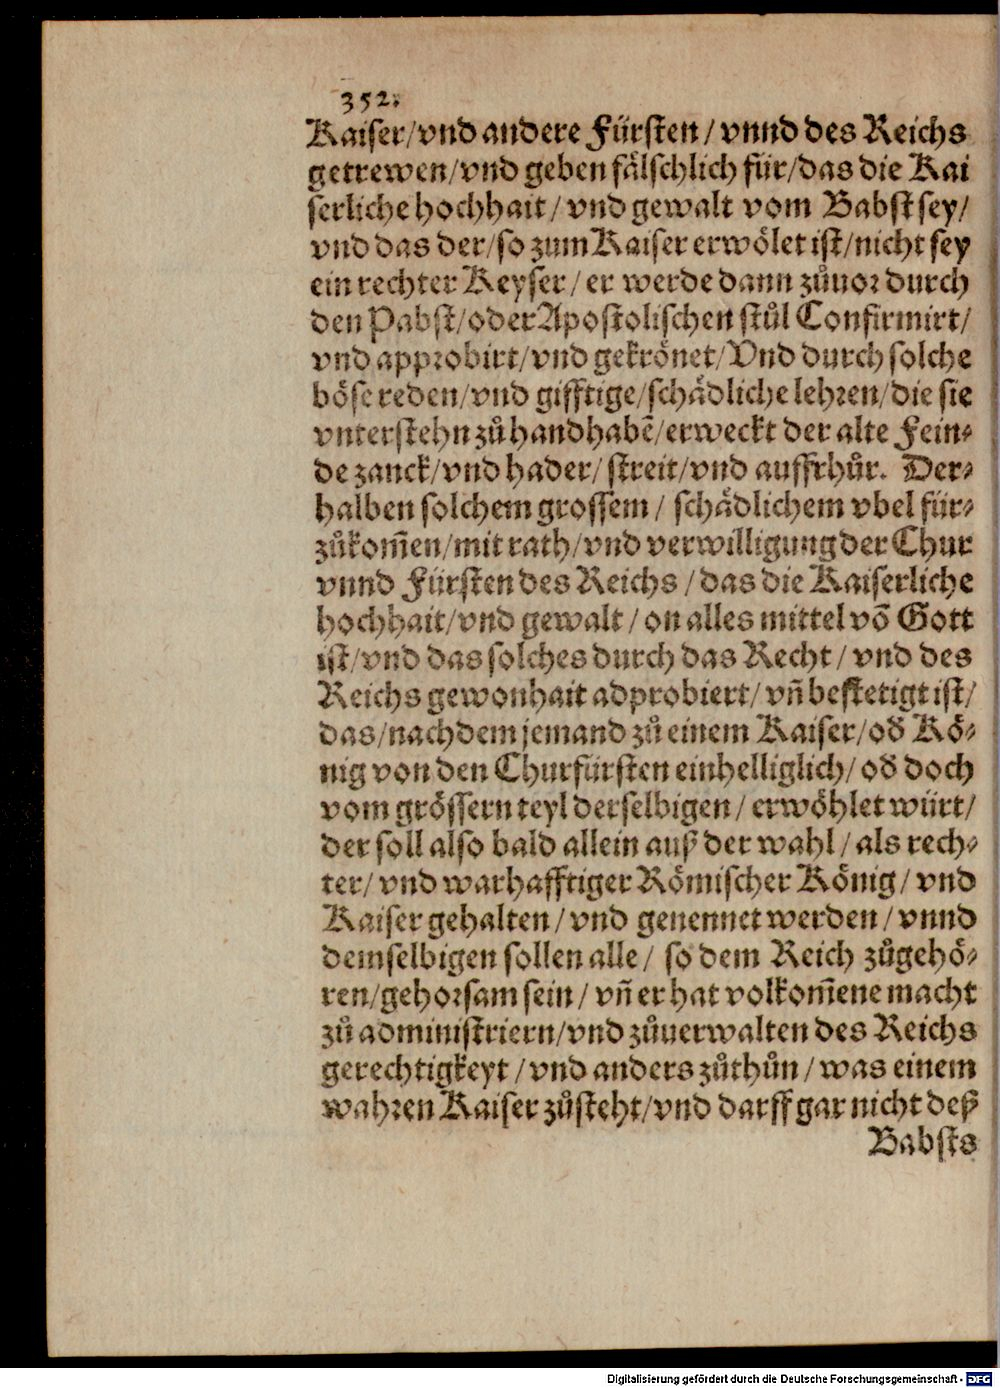 352.
Kaiser/vnd andere Fürsten/ vnnd des Reichs
getrewen/vnd geben fälschlich für/das die Kai
serliche hochhait/ vnd gewalt vom Babst sey/
vnd das der/so zum Kaiser erwölet ist/nicht sey
ein rechter Keyser/ er werde dann zůuor durch
den Pabst/oder Apostolischen stůl Confirmirt/
vnd approbirt/vnd gekrönet/Vnd durch solche
böse reden/vnd gifftige/schädliche lehren/die sie
vnterstehn zů handhabẽ/erweckt der alte Fein⸗
de zanck/vnd hader/ streit/vnd auffrhůr. Der⸗
halben solchem grossem/ schädlichem vbel für⸗
zůkom̃en/mit rath/vnd verwilligung der Chur
vnnd Fürsten des Reichs/das die Kaiserliche
hochhait/vnd gewalt/ on alles mittel võ Gott
ist/vnd das solches durch das Recht/ vnd des
Reichs gewonhait adprobiert/ vñ bestetigt ist/
das/nachdem jemand zů einem Kaiser/od̃ Kö⸗
nig von den Churfürsten einhelliglich/od̃ doch
vom grössern teyl derselbigen/ erwöhlet würt/
der soll also bald allein auß der wahl/ als rech⸗
ter/ vnd warhafftiger Römischer König/ vnd
Kaiser gehalten/vnd genennet werden/ vnnd
demselbigen sollen alle/ so dem Reich zůgehö⸗
ren/gehorsam sein/ vñ er hat volkom̃ene macht
zů administriern/vnd zůuerwalten des Reichs
gerechtigkeyt/vnd anders zůthůn/ was einem
wahren Kaiser zůsteht/vnd darff gar nicht deß
Babsts
Digitalisierung gefördert durch die Deutsche Forschungsgemeinschaft - DFG